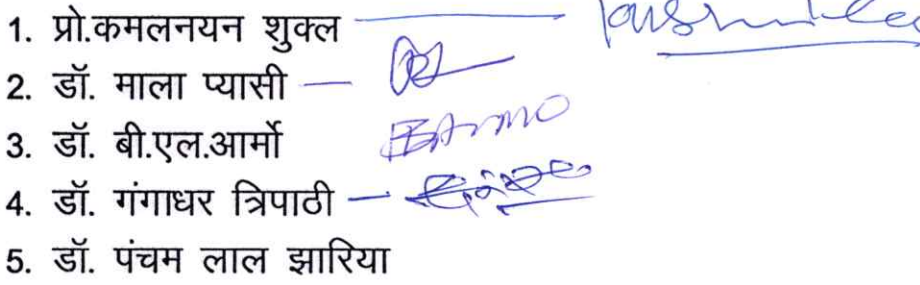 1. प्रो.कमलनयन शुक्ल
2. डॉ. माला प्यासी —
3. डॉ. बी.एल.आर्मो
4. डॉ. गंगाधर त्रिपाठी —
5. डॉ. पंचम लाल झारिया